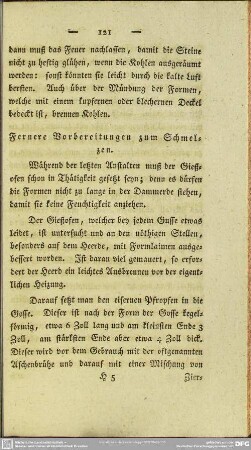 121
dann muß das Feuer nachlassen, damit die Steine
nicht zu heftig glühen, wenn die Kohlen ausgeräumt
werden: sonst könnten sie leicht durch die kalte Luft
bersten. Auch über der Mündung der Formen,
welche mit einem kupfernen oder blechernen Deckel
bedeckt ist, brennen Kohlen.
Fernere Vorbereitungen zum Schmel-
zen.
Während der letzten Anstalten muß der Gieß-
ofen schon in Thätigkeit gesetzt seyn; denn es dürfen
die Formen nicht zu lange in der Dammerde stehen,
damit sie keine Feuchtigkeit anziehen.
Der Gießofen, welcher bey jedem Gusse etwas
leidet, ist untersucht und an den nöthigen Stellen,
besonders auf dem Heerde, mit Formlaimen ausge-
bessert worden. Ist daran viel gemauert, so erfor-
dert der Heerd ein leichtes Ausbrennen vor der eigent-
lichen Heizung.
Darauf setzt man den eisernen Pfropfen in die
Gosse. Dieser ist nach der Form der Gosse kegel-
förmig, etwa 6 Zoll lang und am kleinsten Ende 3
Zoll, am stärksten Ende aber etwa 4 Zoll dick.
Dieser wird vor dem Gebrauch mit der oftgenannten
Aschenbrühe und darauf mit einer Mischung von
H 5
Zier-